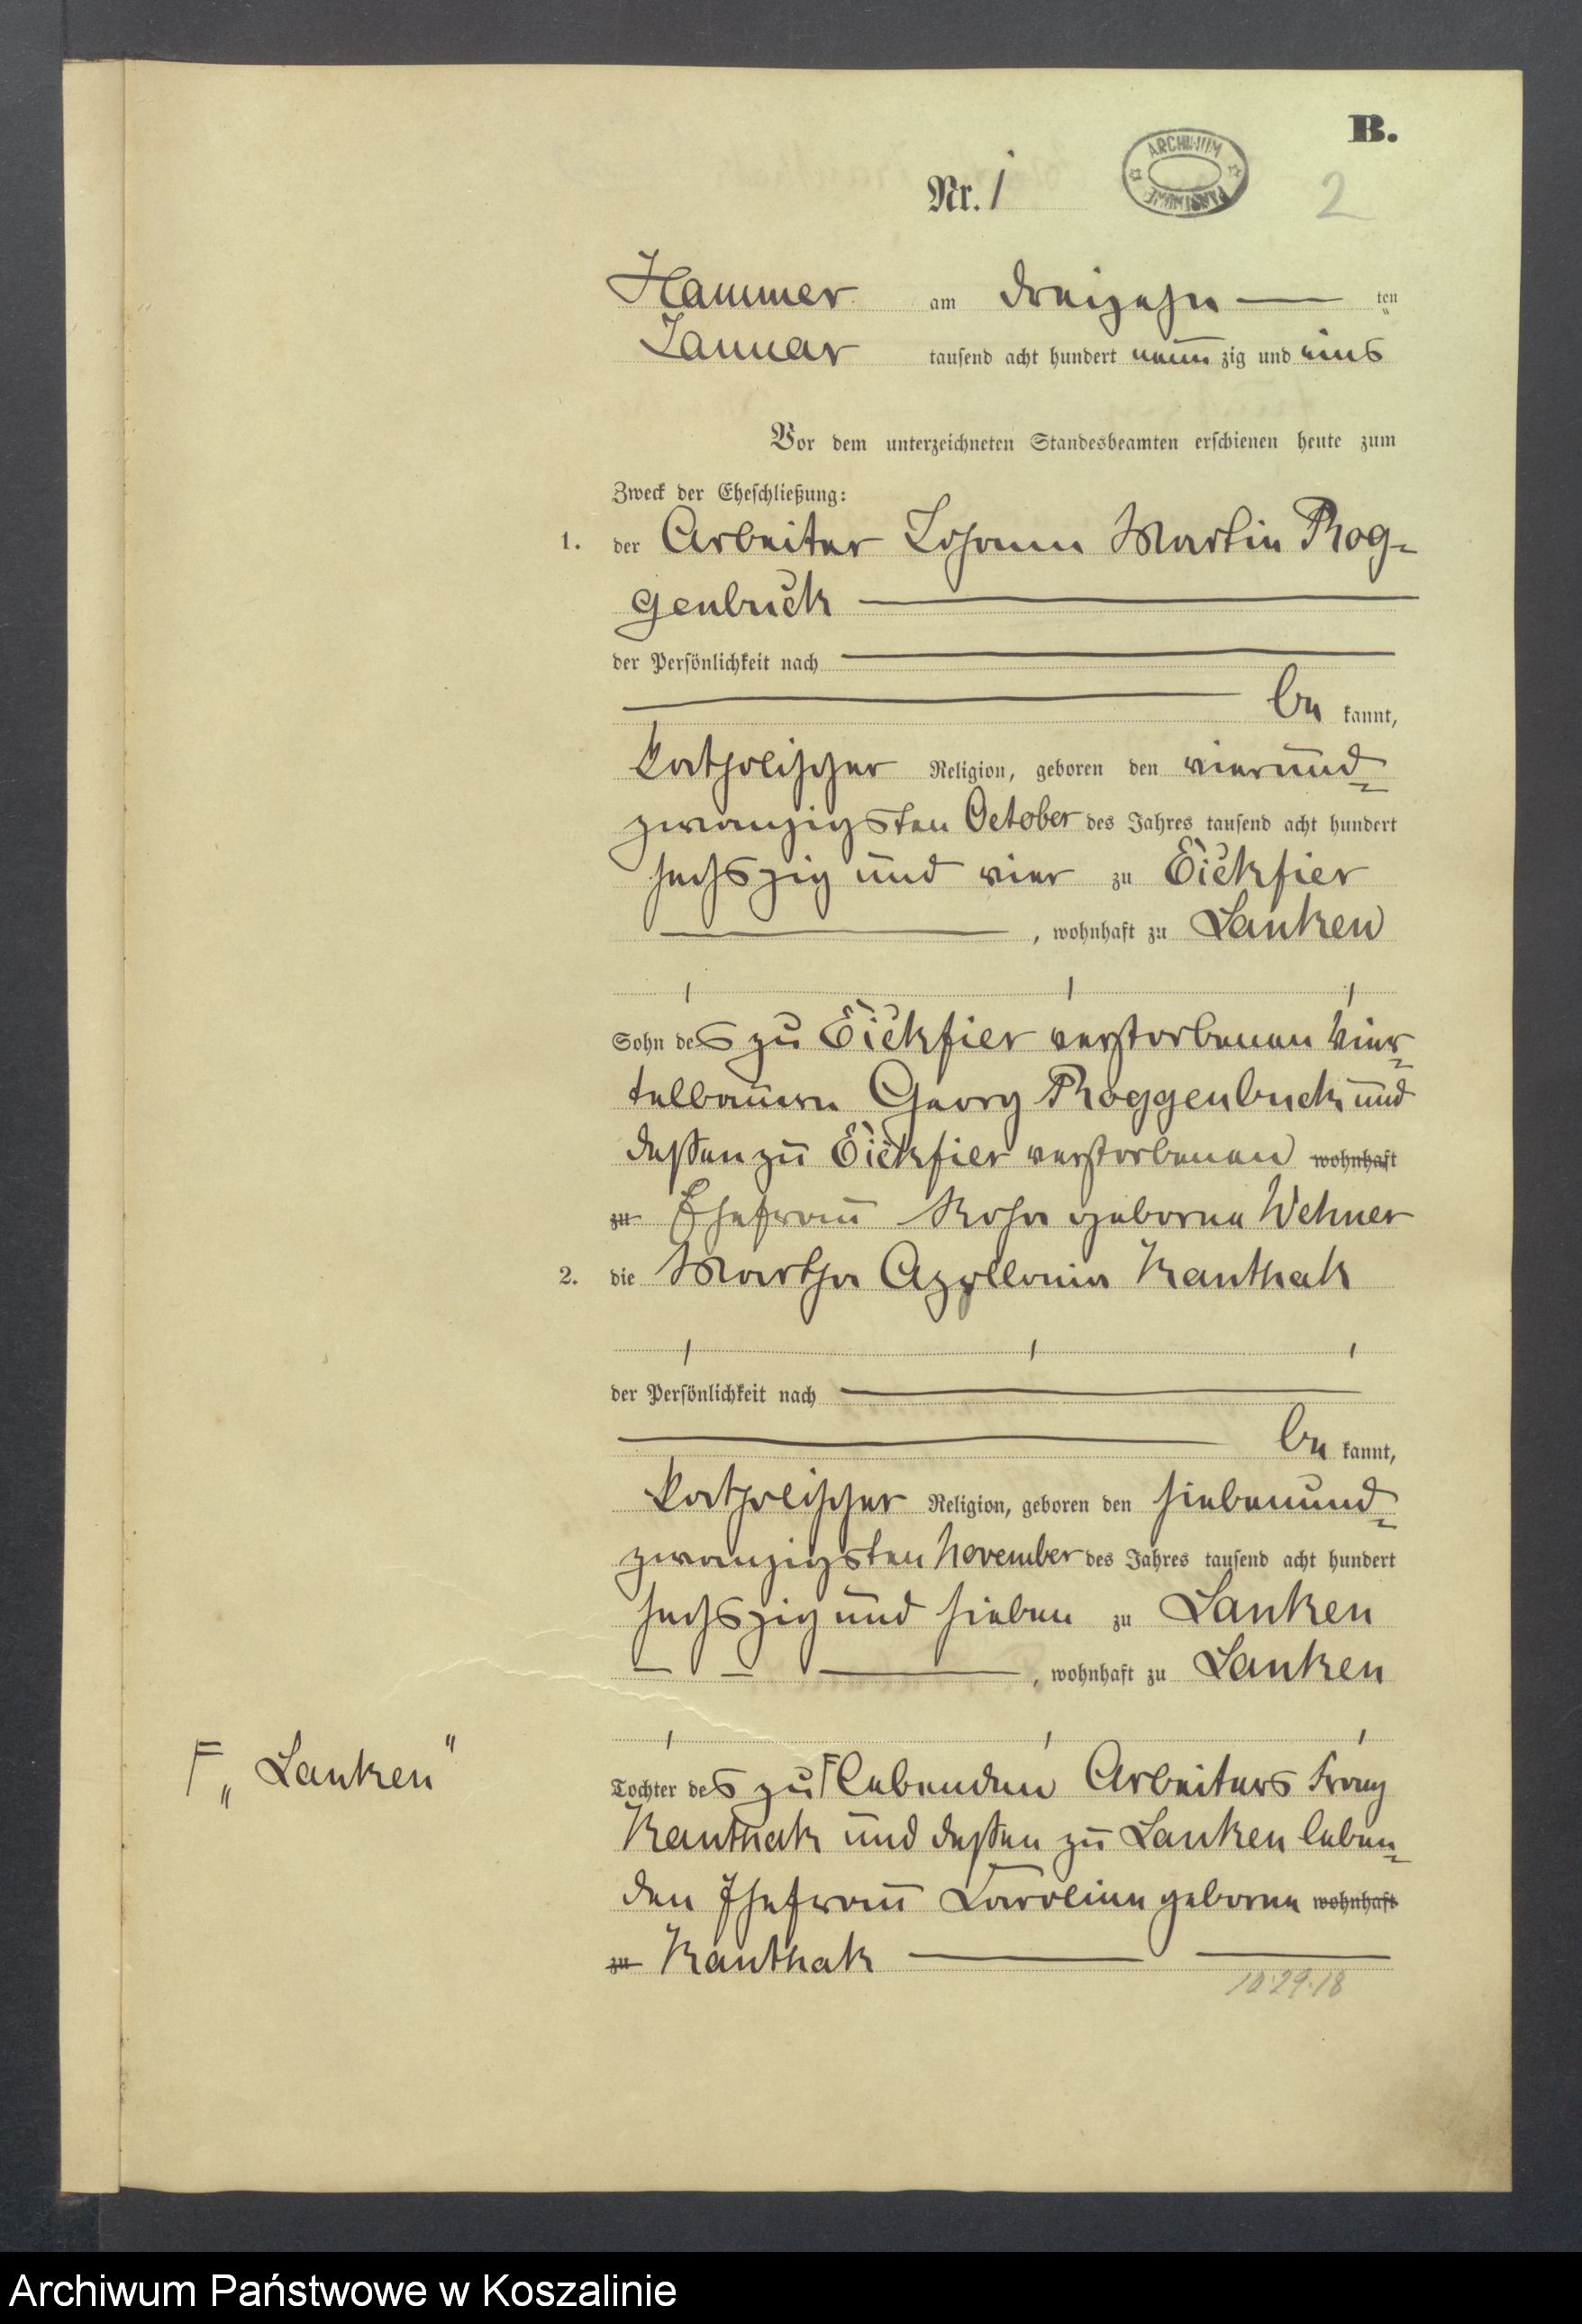 B.
ARCHIWUM PAŃSTWOWE
Nr. 1
2
Hammer am dreizehn ten
Januar tausend acht hundert neun zig und eins
Vor dem unterzeichneten Standesbeamten erschienen heute zum
Zweck der Eheschließung:
1. der Arbeiter Johann Martin Rog-
genbuck
der Persönlichkeit nach
be kannt,
katholischer Religion, geboren den vierund-
zwanzigsten October des Jahres tausend acht hundert
sechszig und vier zu Eickfier
, wohnhaft zu Lanken
Sohn des zu Eickfier verstorbenen Vier-
telbauern Georg Roggenbuck und
dessen zu Eickfier verstorbenen wohnhaft
zu Ehefrau Rosa geborne Wehner
2. die Martha Apollonia Kanthak
der Persönlichkeit nach
be kannt,
katholischer Religion, geboren den siebenund-
zwanzigsten November des Jahres tausend acht hundert
sechszig und sieben zu Lanken
, wohnhaft zu Lanken
F „Lanken"
Tochter des zu F lebenden Arbeiters Franz
Kanthak und dessen zu Lanken leben-
den Ehefrau Caroline geborne wohnhaft
zu Kanthak
10.29.18
Archiwum Państwowe w Koszalinie